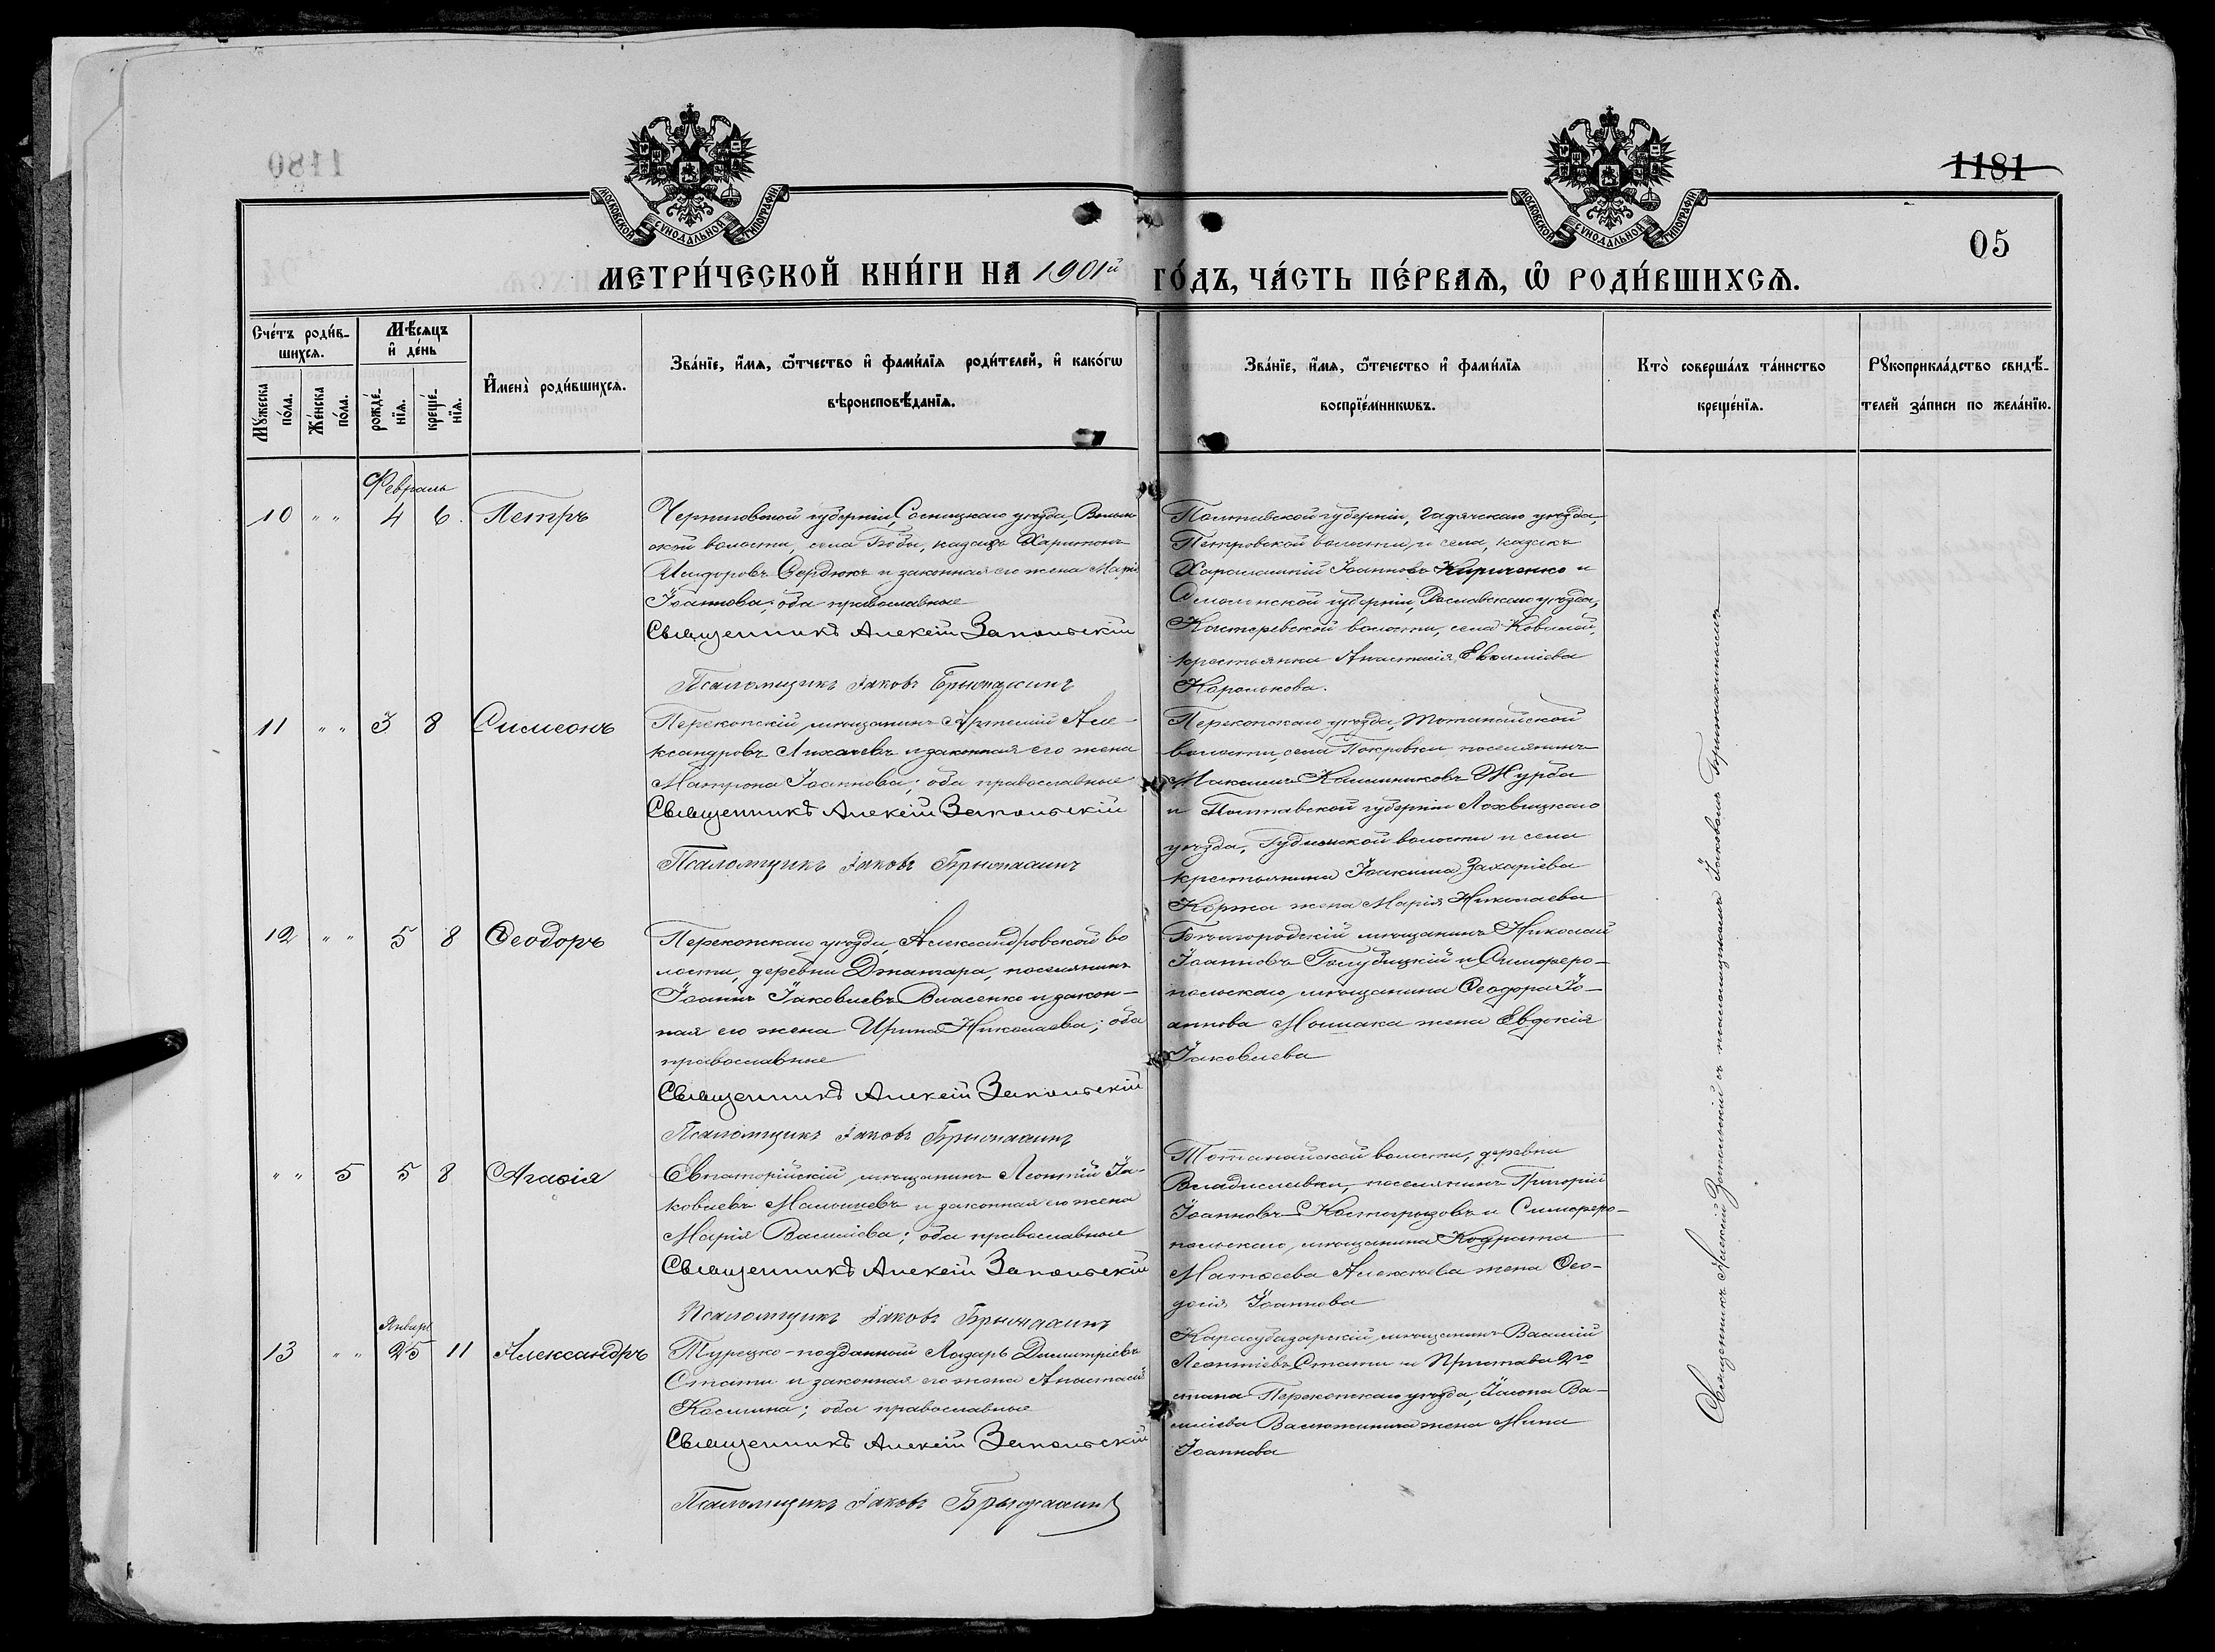 1181
05
МОСКОВСКОЙ СѴНОДАЛЬНОЙ ТИПОГРАФІИ
МОСКОВСКОЙ СѴНОДАЛЬНОЙ ТИПОГРАФІИ
МЕТРИ́ЧЕСКОЙ КНИ́ГИ НА 1901й ГО́ДЪ, ЧА́СТЬ ПЕ́РВАѦ, Ѽ РОДИ́ВШИХСѦ.
Сче́тъ роди́в-
шихсѧ.
Мꙋ́жеска по́ла.
Же́нска по́ла.
Мѣ́сѧцъ
и҆ де́нь
рожде́-нїѧ.
креще́-нїѧ.
И҆мена̀ роди́вшихсѧ.
Зва́нїе, и҆́мѧ, ѻ҆́тчество и҆ фами́лїѧ роди́телей, и҆ како́гѡ
вѣроисповѣ́данїѧ.
Зва́нїе, и҆́мѧ, ѻ҆́течество и҆ фами́лїѧ
воспрїе́мникѡвъ.
Кто̀ соверша́лъ та́инство
креще́нїѧ.
Рꙋкоприкла́дство свидѣ́-
телей за́писи по жела́нїю.
Февраль
10 " " 4 6 Петръ
Черниговской губерніи, Сосницкаго уѣзда, Волын
ской волости, села Бабы, казакъ Харитонъ
Исидоровъ Сердюкъ и законная его жена Марія
Іоаннова; оба православные
Священникъ Алексій Запольскій
Псаломщикъ Іаковъ
Полтавской губерніи, Гадячскаго уѣзда,
Петровской волости и села, казакъ
Харалампій Іоанновъ Кириченко и
Смоленской губерніи, Рославскаго уѣзда,
волости, села
крестьянка Анастасія Евѳиміева
Королькова.
11 " " 3 8 Симеонъ
Перекопскій мѣщанинъ Артемій Але-
ксандровъ Лихачевъ и законная его жена
Матрона Іоаннова; оба православные
Священникъ Алексій Запольскій
Псаломщикъ Іаковъ
Перекопскаго уѣзда, Тотанайской
волости, села Покровки поселянинъ
Максимъ Каллиниковъ Журба
и Полтавской губерніи Лохвицкаго
уѣзда, волости и села
крестьянина Іоакима Захаріева
Коржа жена Марія Николаева
12 " " 5 8 Ѳеодоръ
Перекопскаго уѣзда, Александровской во
лости, деревни Джанкара, поселянинъ
Іоаннъ Іаковлевъ Власенко и закон-
ная его жена Ирина Николаева; оба
православные
Священникъ Алексій Запольскій
Псаломщикъ Іаковъ
Бѣлгородскій мѣщанинъ Николай
Іоанновъ Голубицкій и Симферо-
польскаго мѣщанина Ѳеодора Іо-
аннова жена Евдокія
Іаковлева
" " 5 5 8 Агаѳія
Евпаторійскій мѣщанинъ Леонтій Іа-
ковлевъ Малышевъ и законная его жена
Марія Василіева; оба православные
Священникъ Алексій Запольскій
Псаломщикъ Іаковъ
Тотанайской волости, деревни
Владиславки, поселянинъ Григорій
Іоанновъ Костыризовъ и Симферо-
польскаго мѣщанина Кодрата
Матѳеева Алексѣева жена Ѳео-
досія Іоаннова
Январь
13 " " 25 11 Александръ
Турецко-подданный Лазарь Димитріевъ
Стати и законная его жена Анастасія
Космина; оба православные
Священникъ Алексій Запольскій
Псаломщикъ Іаковъ
Карасубазарскій мѣщанинъ Василій
Леонтіевъ Стати и Пристава 2го
стана Перекопскаго уѣзда, Іасона Ва-
силіева жена Нина
Іоаннова
Священникъ Алексій Запольскій съ псаломщикомъ Іаковомъ